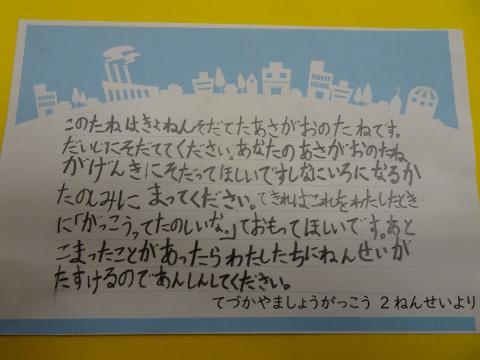 このたねはきょねんそだてたあさがおのたねです。
だいじにそだててください。あなたのあさがおのたね
がげんきにそだってほしいですしなにいろになるか
たのしみに まってください。できればこれをわたしたとき
に「がっこうってたのしいな。」ておもってほしいです。あと
こまったことがあったらわたしたちにねんせいが
たすけるのであんしんしてください。
てづかやましょうがっこう 2ねんせいより